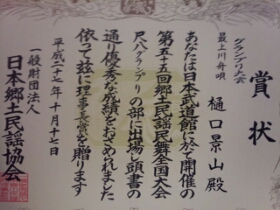 賞状
グランプリ大会
最上川舟唄
樋口景山殿
あなたは日本武道館に於て開催の
第五十五回郷土民謡民舞全国大会
尺八グランプリの部に出場し頭書の
通り優秀な成績をおさめられました
依って茲に理事長賞を贈ります
平成二十七年十月十七日
一般財団法人
日本郷土民謡協会